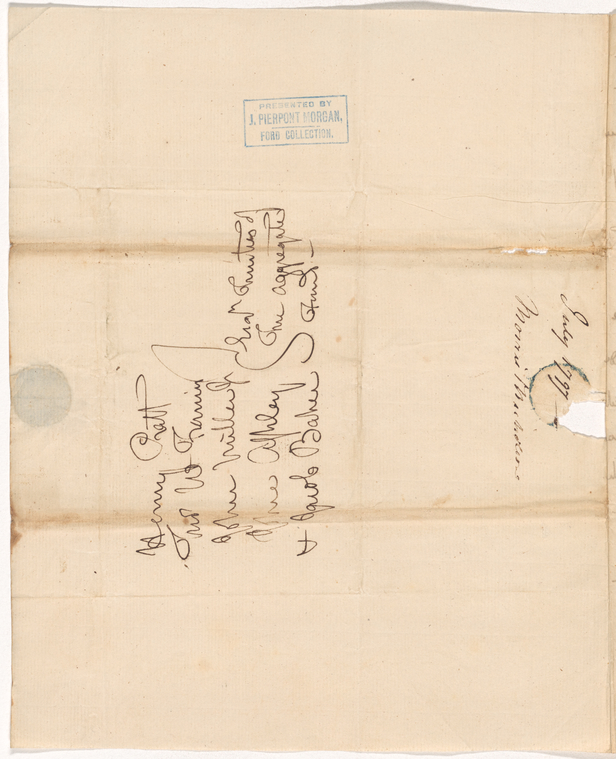 PRESENTED BY
J. PIERPONT MORGAN,
FORD COLLECTION.
Henry Pratt
Thos W Francis
John Miller Jr
John Ashley
& Jacob Baker
Trustees of
the aggregate
Fund
July 1797
Morris & Nicholson